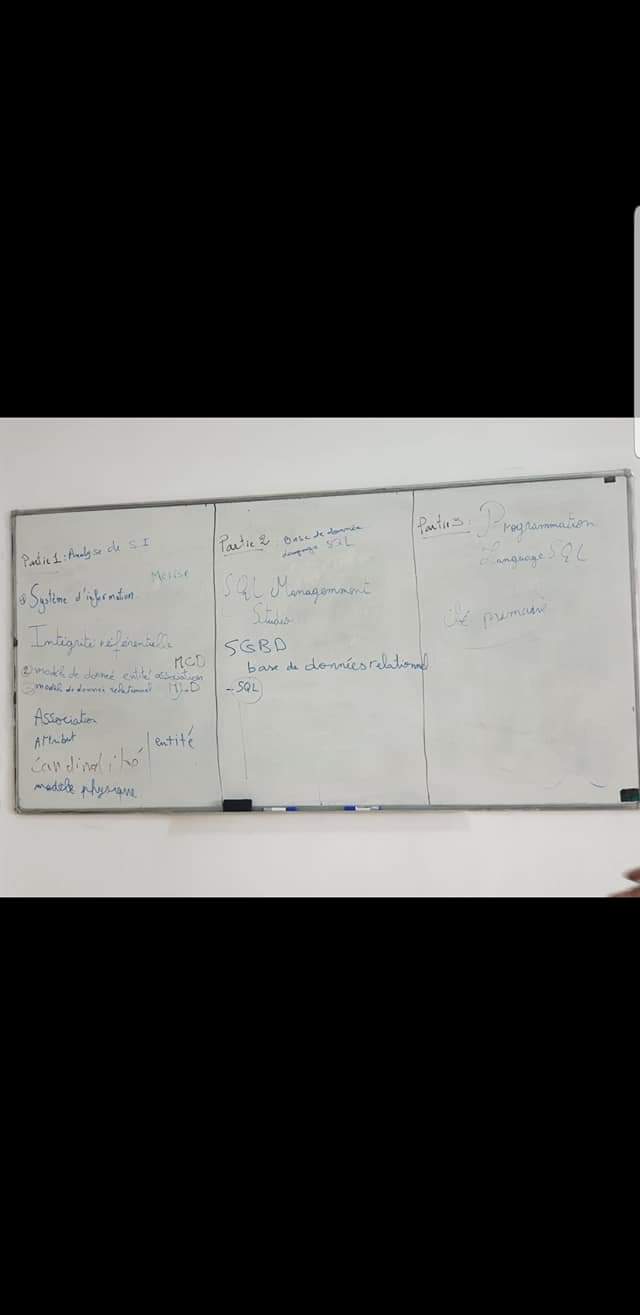 Partie 1: Analyse de S I
Merise
① Système d'information
Intégrité référentielle
MCD
② modèle de donné entité association
③ modèle de donnée relationnel MLD
Association
Attribut
entité
Cardinalité
modèle physique
Partie 2 Base de donnée
SQL
SQL Managemment
Studio
SGBD
base de données relationnel
- SQL
Partie 3: Programmation
Language SQL
clé primaire